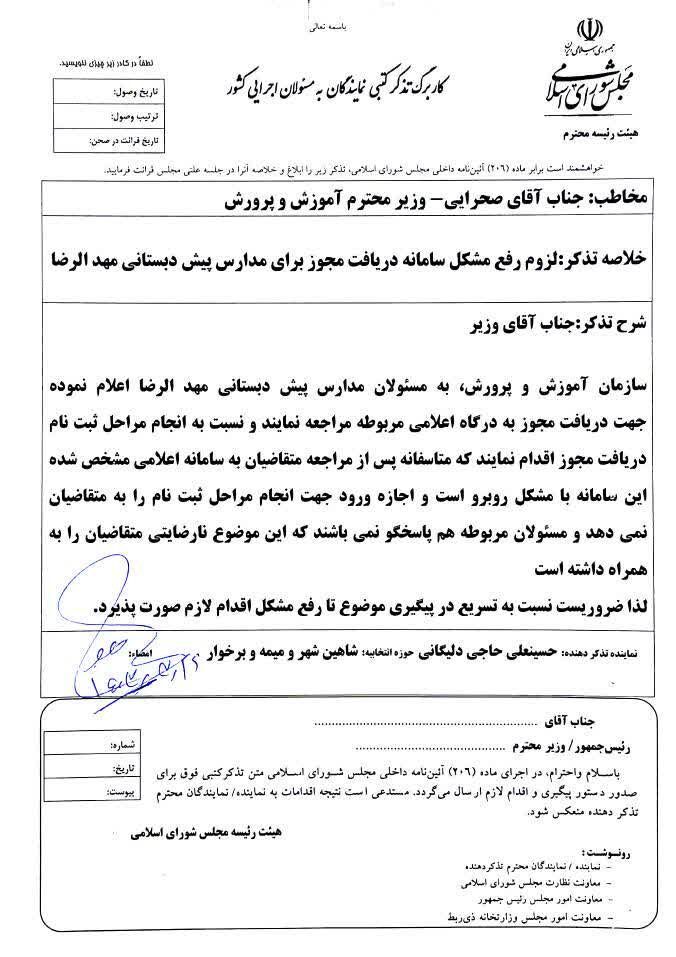 باسمه تعالی
جمهوری اسلامی ایران
مجلس شورای اسلامی
کاربرگ تذکر کتبی نمایندگان به مسئولان اجرایی کشور
لطفاً در کادر زیر چیزی ننویسید.
تاریخ وصول:
ترتیب وصول:
تاریخ قرائت در صحن:
هیئت رئیسه محترم
خواهشمند است برابر ماده (۲۰۶) آئین‌نامه داخلی مجلس شورای اسلامی، تذکر زیر را ابلاغ و خلاصه آنرا در جلسه علنی مجلس قرائت فرمایید.
مخاطب: جناب آقای صحرایی– وزیر محترم آموزش و پرورش
خلاصه تذکر:لزوم رفع مشکل سامانه دریافت مجوز برای مدارس پیش دبستانی مهد الرضا
شرح تذکر:جناب آقای وزیر
سازمان آموزش و پرورش، به مسئولان مدارس پیش دبستانی مهد الرضا اعلام نموده
جهت دریافت مجوز به درگاه اعلامی مربوطه مراجعه نمایند و نسبت به انجام مراحل ثبت نام
دریافت مجوز اقدام نمایند که متاسفانه پس از مراجعه متقاضیان به سامانه اعلامی مشخص شده
این سامانه با مشکل روبرو است و اجازه ورود جهت انجام مراحل ثبت نام را به متقاضیان
نمی دهد و مسئولان مربوطه هم پاسخگو نمی باشند که این موضوع نارضایتی متقاضیان را به
همراه داشته است
لذا ضروریست نسبت به تسریع در پیگیری موضوع تا رفع مشکل اقدام لازم صورت پذیرد.
نماینده تذکر دهنده: حسینعلی حاجی دلیگانی حوزه انتخابیه: شاهین شهر و میمه و برخوار امضاء:
جناب آقای ................................................................
رئیس‌جمهور/ وزیر محترم ...........................................
شماره:
تاریخ:
پیوست:
باسلام واحترام، در اجرای ماده (۲۰۶) آئین‌نامه داخلی مجلس شورای اسلامی متن تذکرکتبی فوق برای
صدور دستور پیگیری و اقدام لازم ارسال می‌گردد. مستدعی است نتیجه اقدامات به نماینده/ نمایندگان محترم
تذکر دهنده منعکس شود.
هیئت رئیسه مجلس شورای اسلامی
رونوشت:
- نماینده / نمایندگان محترم تذکردهنده
- معاونت نظارت مجلس شورای اسلامی
- معاونت امور مجلس رئیس جمهور
- معاونت امور مجلس وزارتخانه ذی‌ربط